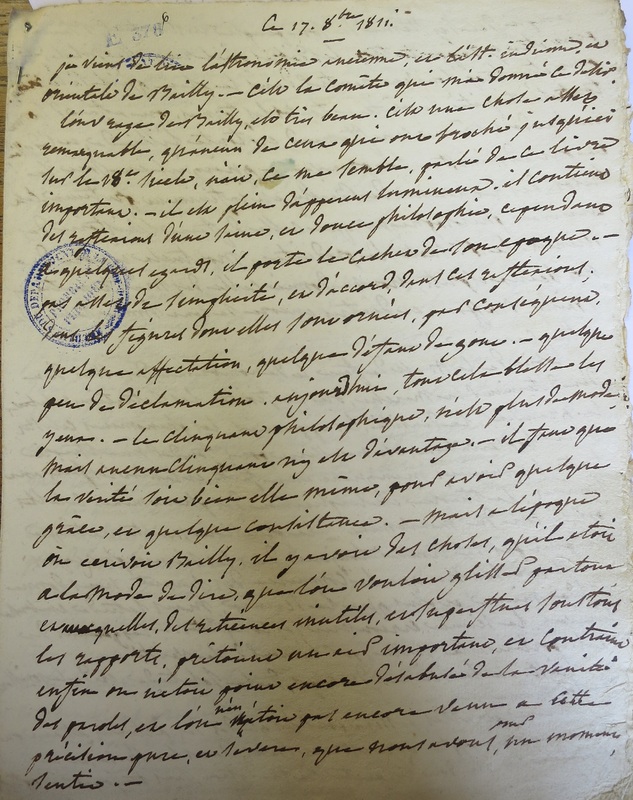 Ce 17. 8bre 1811.
je viens de lire l'astronomie ancienne, et celle indienne et
orientale de Bailly. — c'est la comète qui m'a donné ce désir
l'ouvrage de Bailly, est très beau. c'est une chose assez
remarquable, qu'aucun de ceux qui ont broché jusqu'ici
sur le 18e siècle, n'ait, ce me semble, parlé de ce livre
important. — il est plein d'apperçus lumineux. il contient
des réflexions d'une saine, et douce philosophie, cependant
à quelques egards, il porte le cachet de son epoque. —
pas assez de simplicité, et d'accord, dans ces réflexions,
figures dont elles sont ornées, par conséquent,
quelque affectation, quelque défaut de gout. — quelque
peu de déclamation. aujourd'hui, tout cela blesse les
yeux. — le clinquant philosophique, n'est plus de mode
mais aucun clinquant n'y est davantage. — il faut que
la vérité soit bien elle même, pour avoir quelque
grâce, et quelque consistance. — mais a l'époque
où ecrivoit Bailly, il y avoit des choses, qu'il etoit
a la mode de dire, que l'on vouloit glisser partout
et auxquelles, des reticences inutiles, et superflues sous tous
les rapports, prêtoient un air important, et contraint
enfin on n'etoit point encore désabusé de la vanité
des paroles, et l'on n'en étoit pas encore venu a cette
précision pure, et severe, que nous avons, pour un moment,
sentie. —